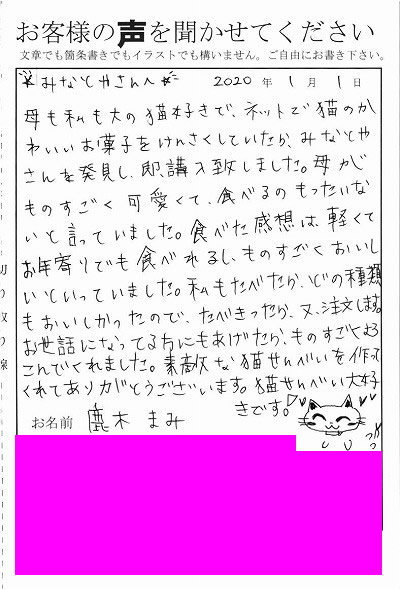 お客様の声を聞かせてください
文章でも箇条書きでもイラストでも構いません。ご自由にお書き下さい。
☆みなとやさんへ☆ 2020 年 1 月 1 日
母も私も大の猫好きで、ネットで猫のか
わいいお菓子をけんさくしていたら、みなとや
さんを発見し、即、購入致しました。母が
ものすごく可愛くて、食べるのもったいな
いと言っていました。食べた感想は、軽くて
お年寄りでも食べれるし、ものすごくおいし
いといっていました。私もたべたら、どの種類
もおいしかったので、たべきったら、又、注文します。
お世話になってる方にもあげたら、ものすごくよろ
こんでくれました。素敵な猫せんべいを作って
くれてありがとうございます。猫せんべい大好
きです。
お名前 鹿木 まみ
切り取り線